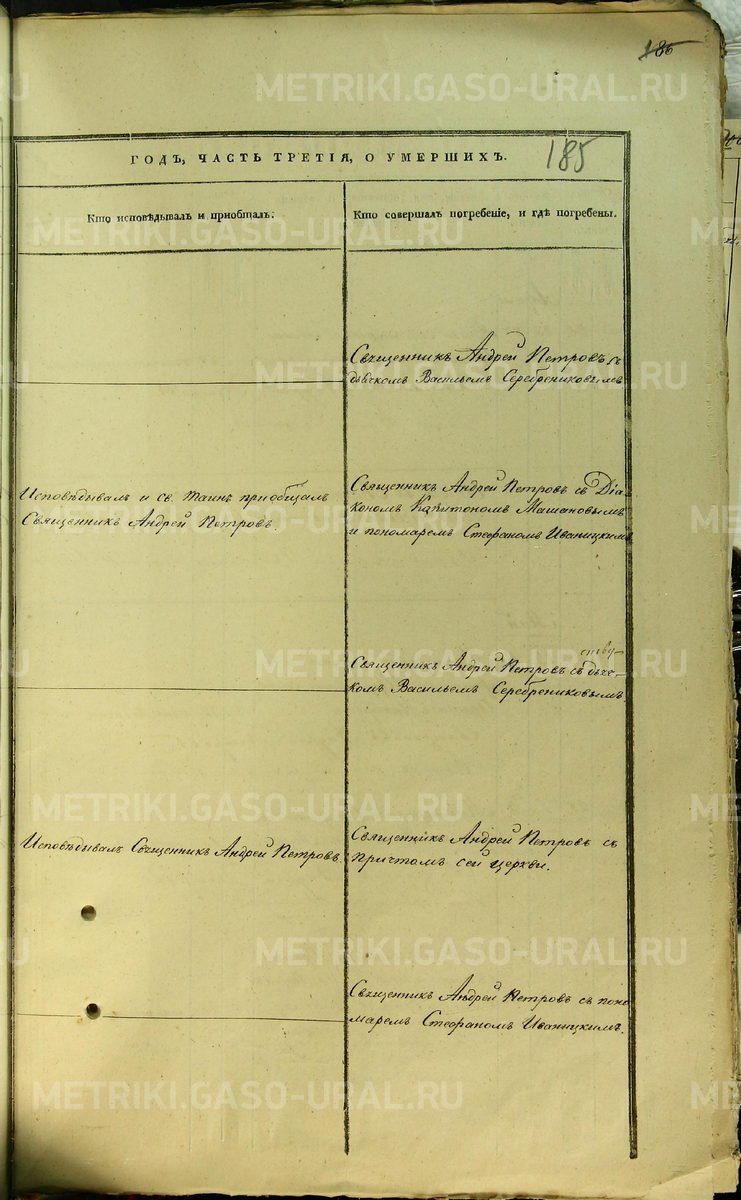 186
185
ГОДЪ, ЧАСТЬ ТРЕТІЯ, О УМЕРШИХЪ.
Кто исповѣдывалъ и пріобщалъ.
Кто совершалъ погребеніе, и гдѣ погребены.
Священникъ Андрей Петровъ съ
дьячкомъ Васильемъ Серебрениковымъ
Исповѣдывалъ и св. таинъ приобщалъ
Священникъ Андрей Петровъ.
Священникъ Андрей Петровъ съ Діа-
кономъ Капитономъ Машановымъ
и пономаремъ Стефаномъ Иваницкимъ
Священникъ Андрей Петровъ съ
комъ Васильемъ Серебрениковымъ.
Исповѣдывалъ Священникъ Андрей Петровъ.
Священникъ Андрей Петровъ съ
причтомъ сей церкви.
Священникъ Андрей Петровъ съ поно
маремъ Стефаномъ Иваницкимъ.
METRIKI.GASO-URAL.RU